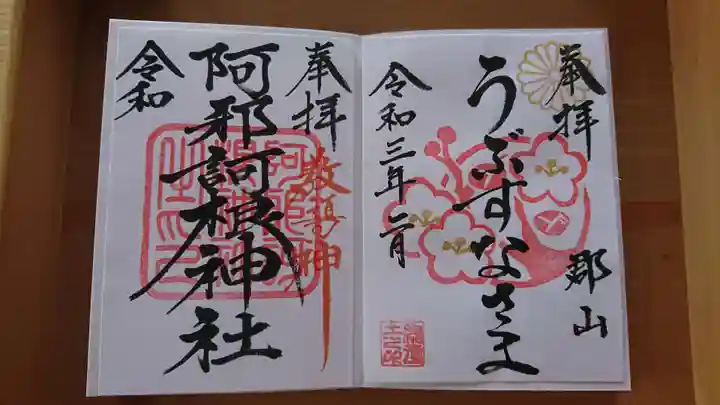 奉拝
郡山
うぶすなさま
令和三年二月
奉拝
敬
神
阿邪訶根神社
令和